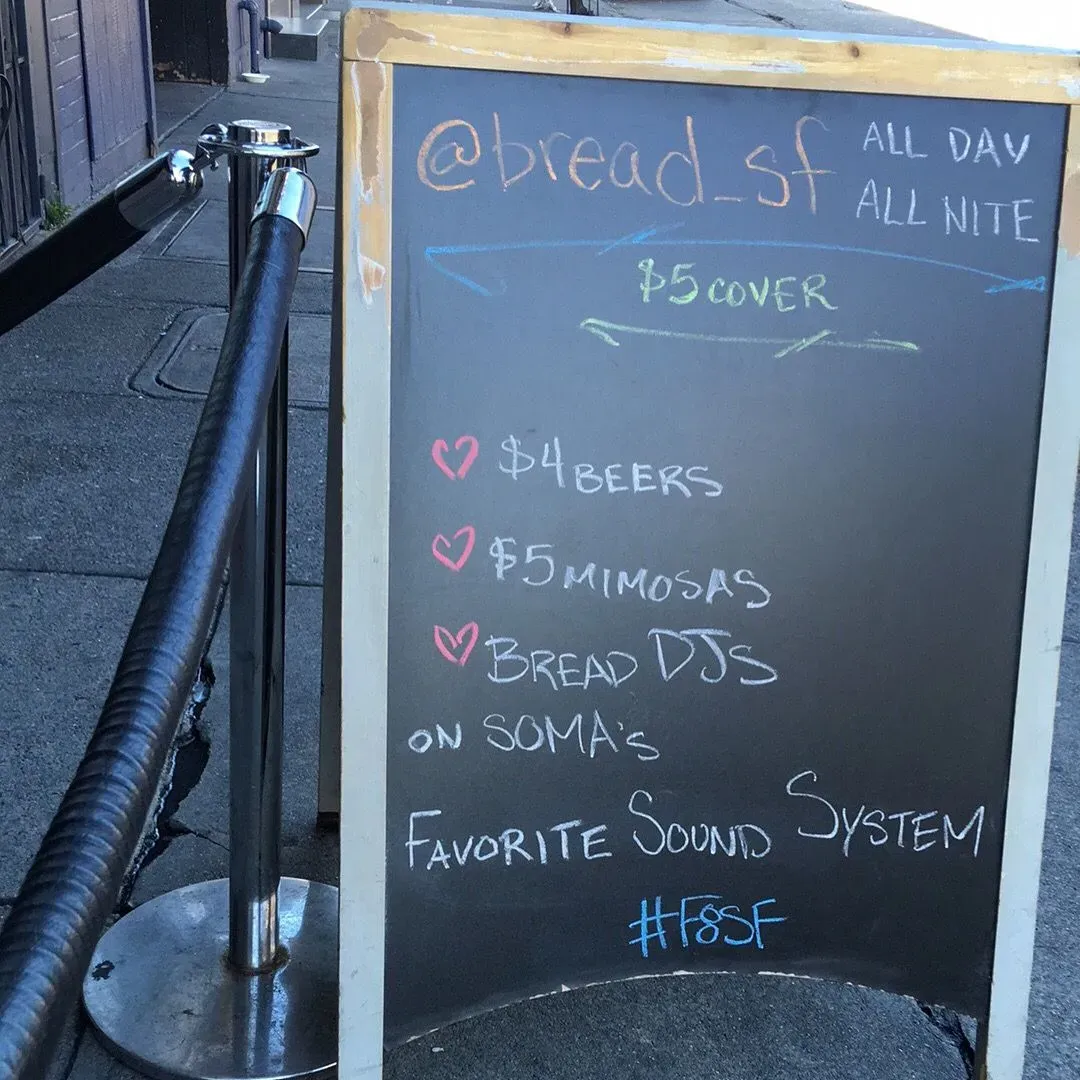 @bread_sf ALL DAY
ALL NITE
$5 COVER
$4 BEERS
$5 MIMOSAS
BREAD DJS
ON SOMA'S
FAVORITE SOUND SYSTEM
#F8SF